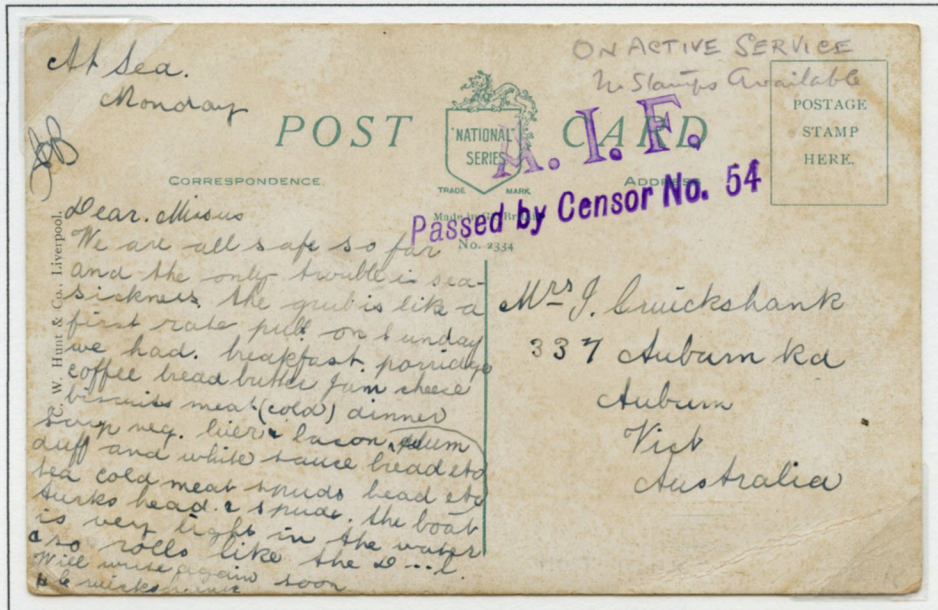 At Sea.
Monday
ON ACTIVE SERVICE
No Stamps Available
POST CARD
"NATIONAL"
SERIES
TRADE MARK
A. I. F.
POSTAGE
STAMP
HERE.
CORRESPONDENCE.
ADDRESS
Passed by Censor No. 54
Made in Gt. Britain
No. 2334
C. W. Hunt & Co., Liverpool.
Dear. Missus
We are all safe so far
and the only trouble is sea-
sickness. the grub is like a
first rate pub. on Sunday
we had. breakfast. porridge
coffee bread butter jam cheese
biscuits meat (cold) dinner
soup veg. liver & bacon. plum
duff and white sauce bread etc
tea cold meat spuds bread etc
turks head & spuds. the boat
is very light in the water
& so rolls like the D...l.
Will write again soon
Cruickshank
Mrs J. Cruickshank
337 Auburn Rd
Auburn
Vict
Australia